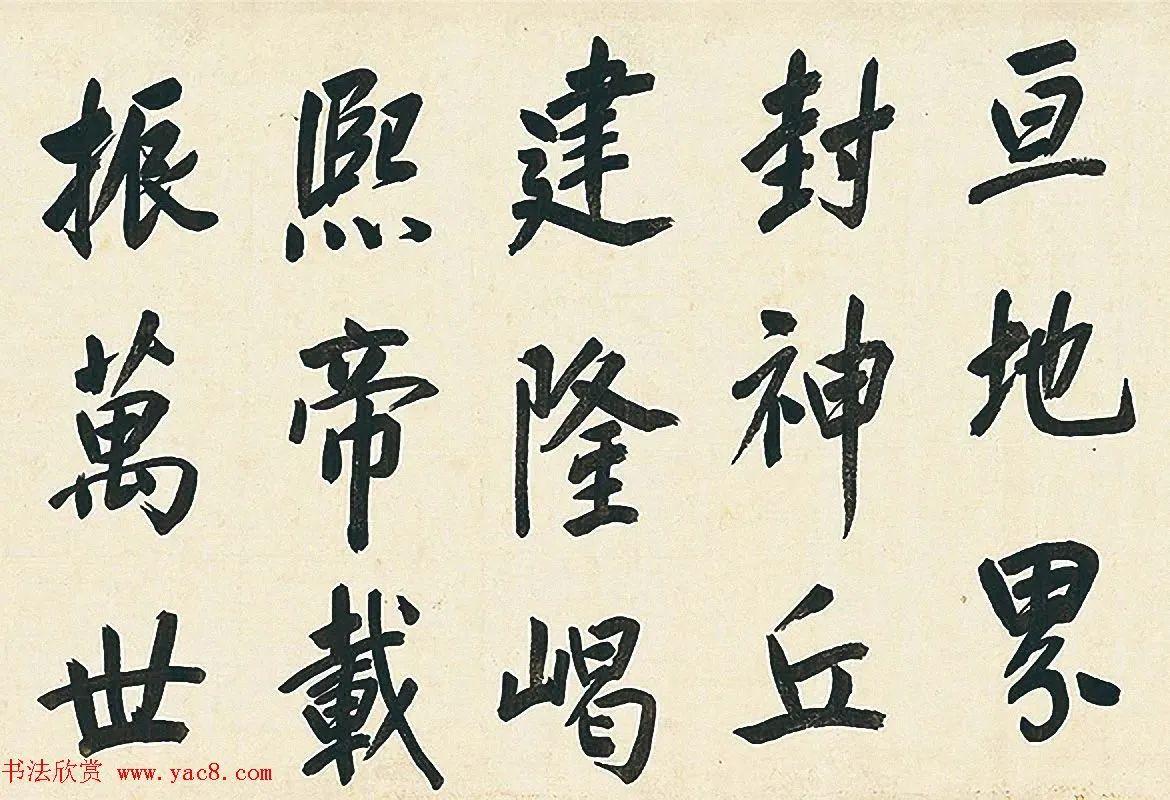 亘地界
封神丘
建隆嵑
熙帝載
振萬世
书法欣赏 www.yac8.com